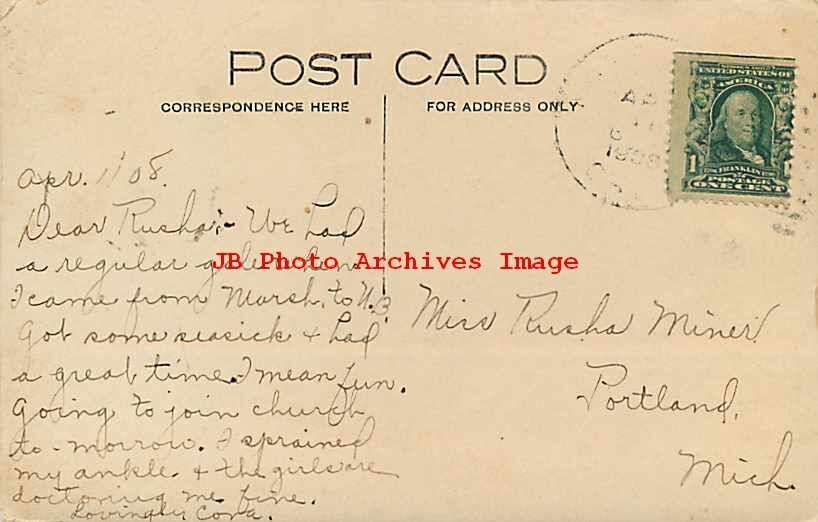 POST CARD
CORRESPONDENCE HERE
FOR ADDRESS ONLY
1908
ORE
UNITED STATES OF
AMERICA
1 FRANKLIN 1
POSTAGE
ONE CENT
Apr. 11 '08.
Dear Rusha:- We had
a regular gale when
JB Photo Archives Image
I came from Marsh. to N.B.
Got some seasick & had
a great time. I mean fun.
Going to join church
to-morrow. I sprained
my ankle & the girls are
doctoring me fine.
Lovingly Cora.
Miss Rusha Miner
Portland,
Mich.